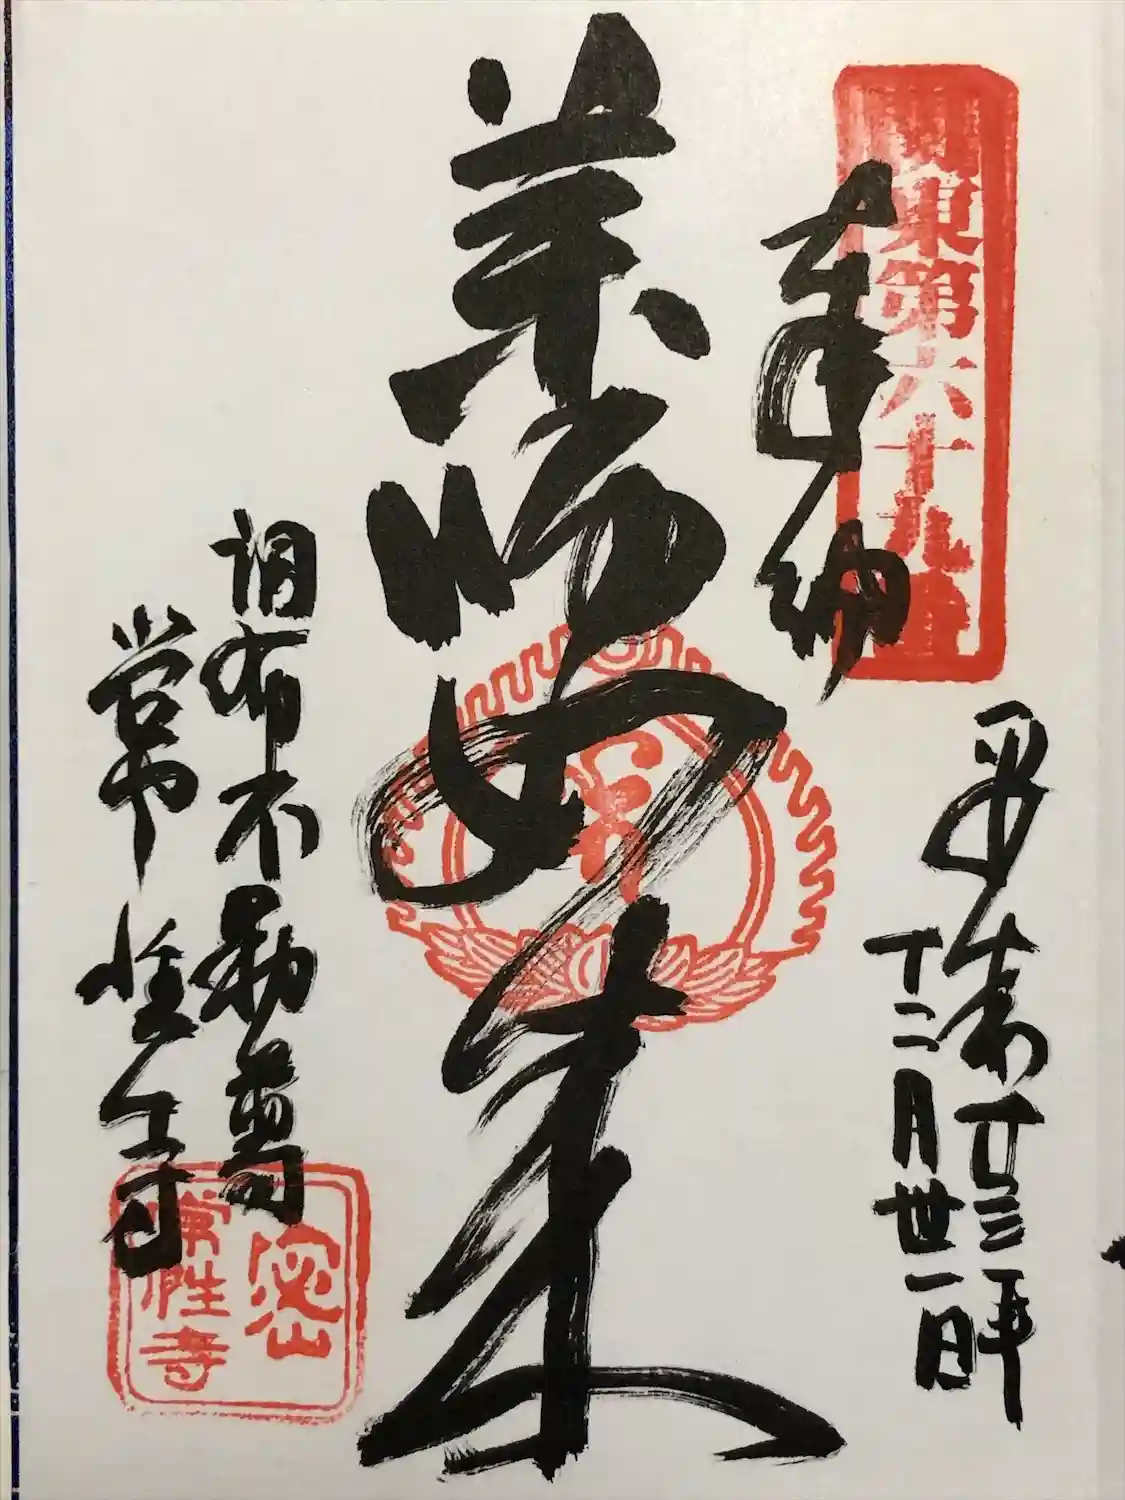 関東第六十九番
奉納
平成廿三年
十二月世一日
薬師如来
調布不動尊
常性寺
密山
常性寺